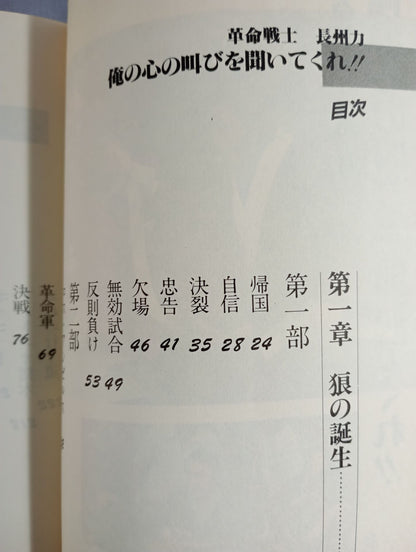 革命戦士　長州力
俺の心の叫びを聞いてくれ!!
目次
第一章　狼の誕生
第一部
帰国 24
自信 28
決裂 35
忠告 41
欠場 46
無効試合 49
反則負け 53
第二部
革命軍 69
決戦 76